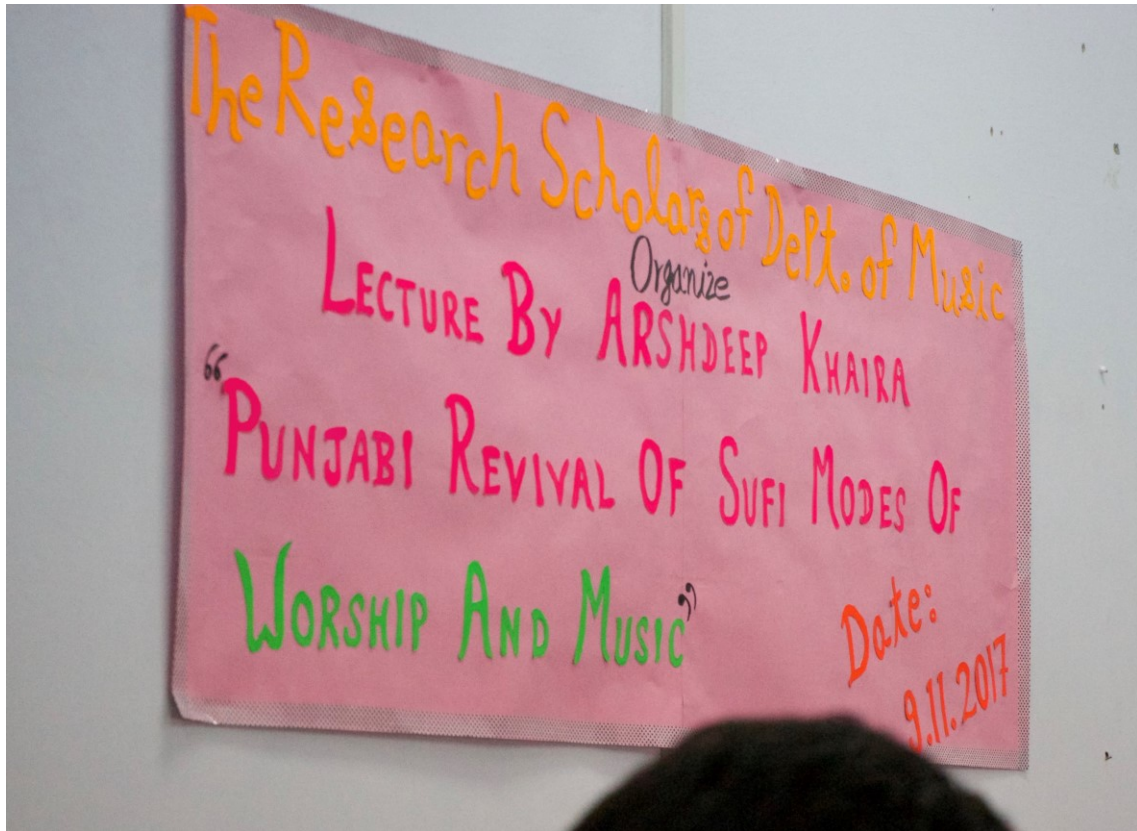 The Research Scholars of Dept. of Music
Organize
Lecture By Arshdeep Khaira
“Punjabi Revival Of Sufi Modes Of
Worship And Music”
Date:
9.11.2017